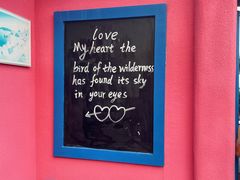 love
My heart the
bird of the wilderness
has found its sky
in your eyes